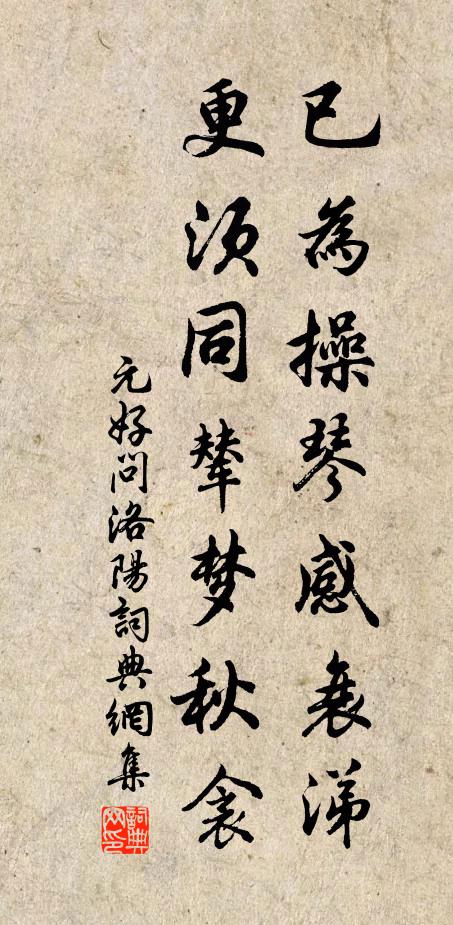 已為操琴感衰涕
更須同輦夢秋衾
元好問洛陽詞典網集
詞典網印